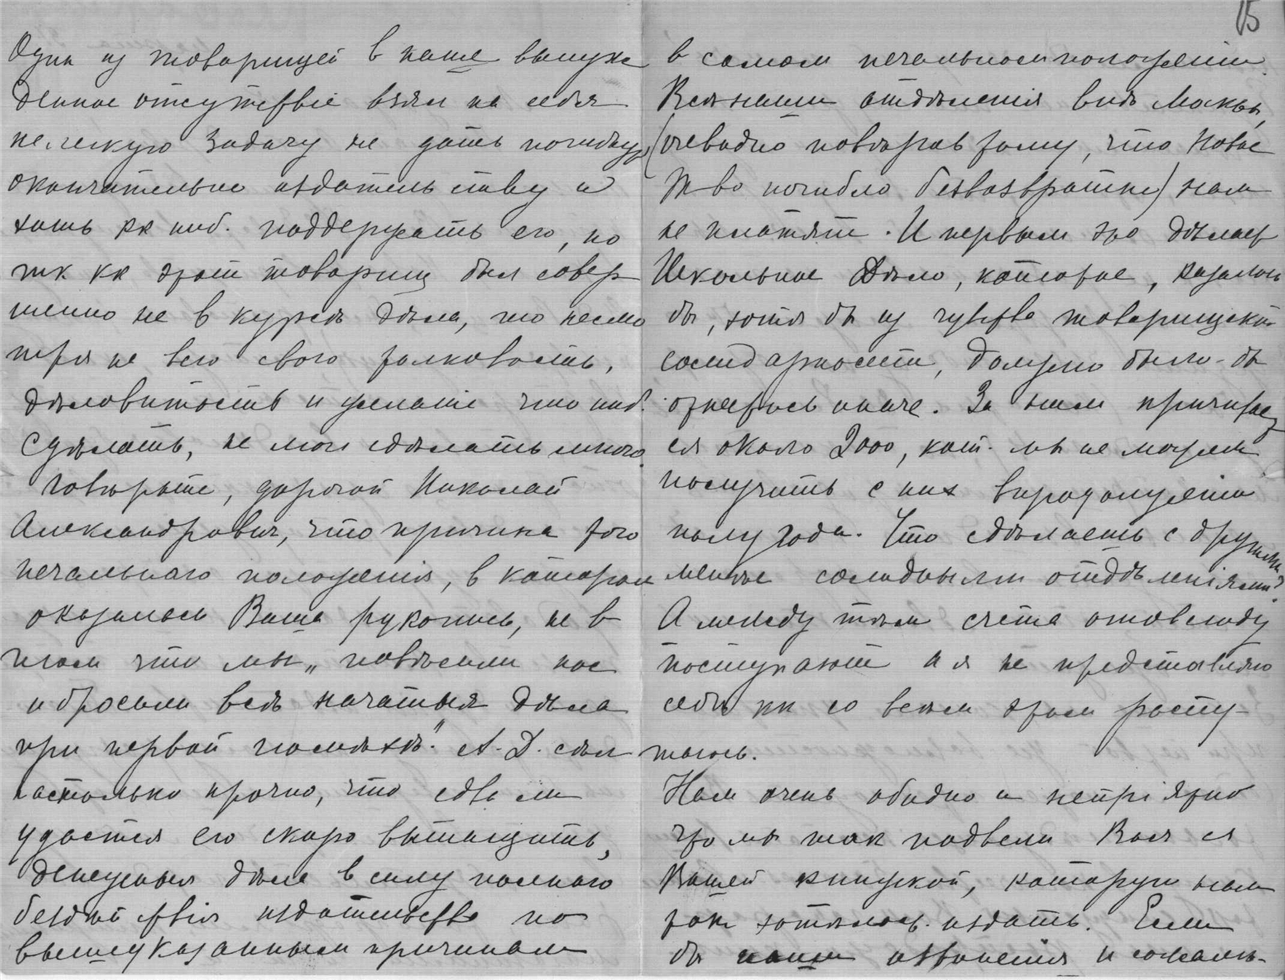 15
Один из товарищей в наше вынуж
денное отсутствіе взял на себя
нелегкую задачу не дать погибнуть
окончательно издательству и
хоть кк ниб. поддержать его, но
тк кк этот товарищ был совер
шенно не в курсѣ дѣла, то несмо
тря на всю свою толковость,
дѣловитость и желаніе что ниб.
сдѣлать, не мог сдѣлать много.
Повѣрьте, дорогой Николай
Александрович, что причина того
печальнаго положенія, в котором
оказалась Ваша рукопись, не в
том что мы „повѣсили нос
и бросили всѣ начатыя дѣла
при первой помѣхѣ". А. Д. сѣл
настолько прочно, что едва ли
удастся его скоро вытащить,
денежныя дѣла в силу полнаго
бездѣйствія издательства по
вышеуказанным причинам
в самом печальном положеніи.
Всѣ наши отдѣленія внѣ Москвы,
(очевидно повѣрив тому, что Новое
Т-во погибло безвозвратно) нам
не платят. И первым это дѣлает
Школьное Дѣло, которое, казалось
бы, хотя бы из чувства товарищеской
солидарности, должно было-бы
отнестись иначе. За ним причитает
ся около 2000, кот. мы не можем
получить с них в продолженіи
полугода. Что сдѣлаешь с другими
менѣе солидными отдѣленіями?
А между тѣм счета отовсюду
поступают и я не представляю
себѣ кк со всѣм этим распу-
таюсь.
Нам очень обидно и непріятно
что мы так подвели Вас с
Вашей книжкой, которую нам
так хотѣлось издать. Если
бы наши извиненія и сожалѣ-